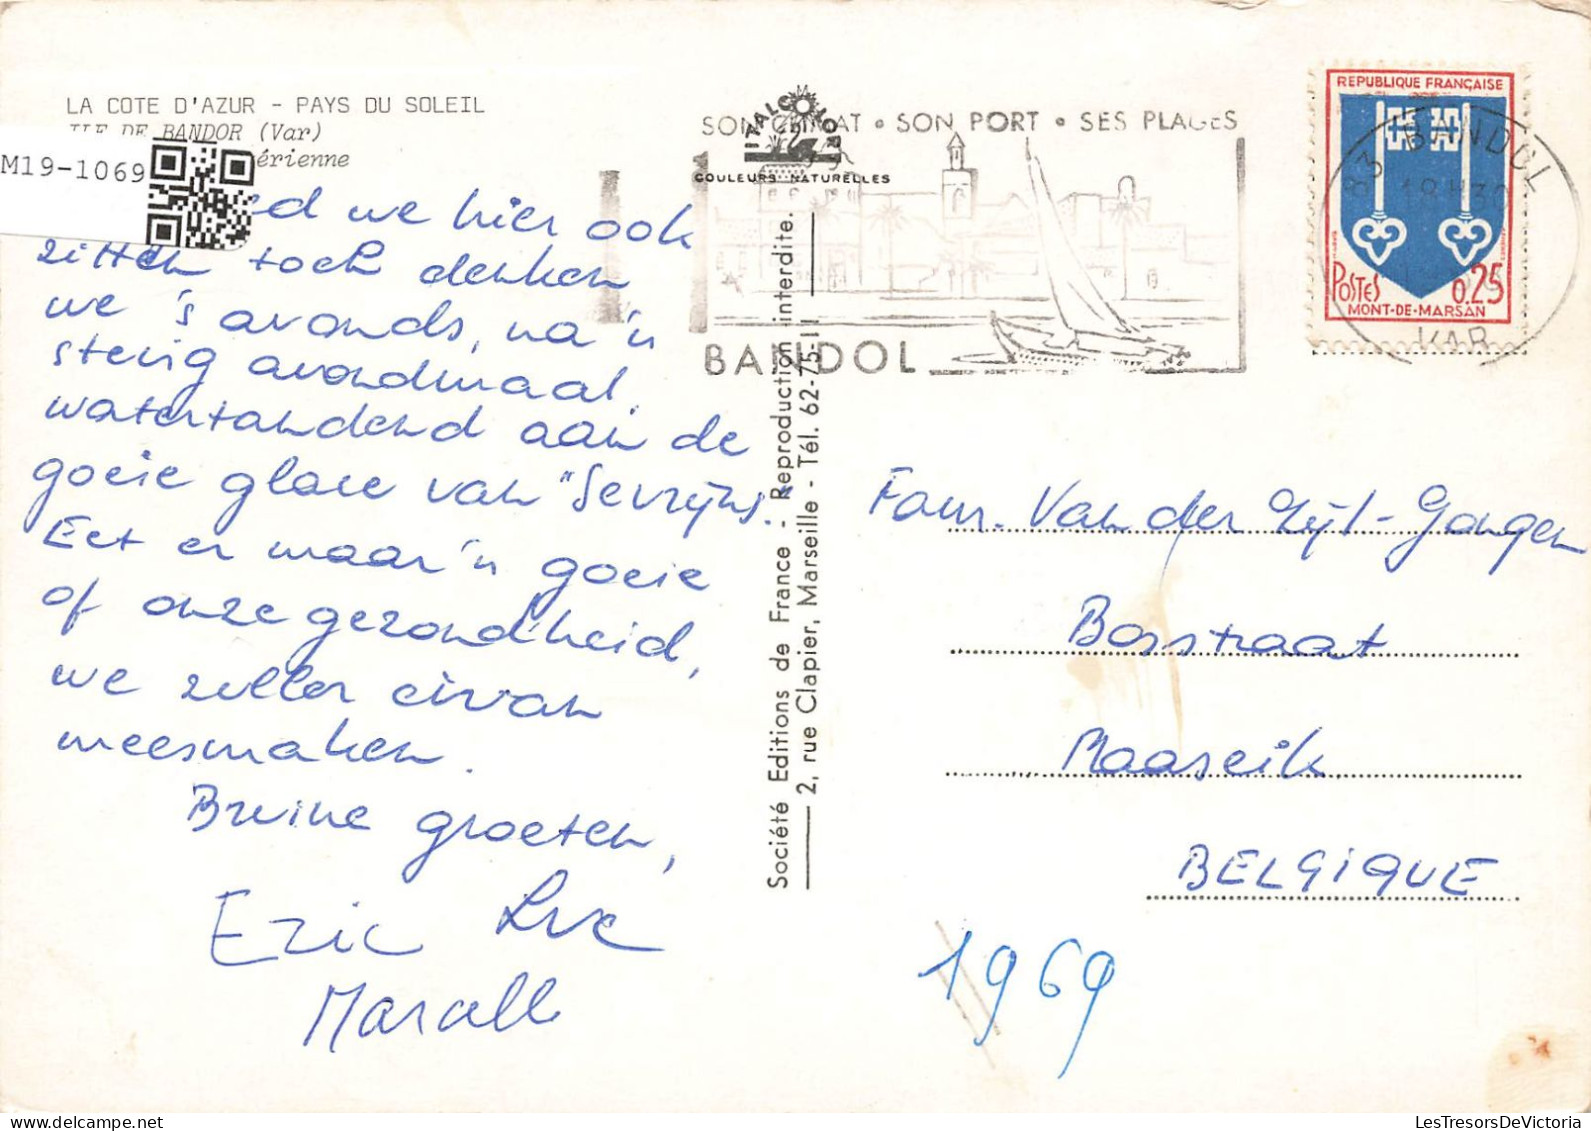 LA COTE D'AZUR - PAYS DU SOLEIL
ILE DE BANDOR (Var)
érienne
M19-1069
ITALCOLOR
COULEURS NATURELLES
SON CLIMAT • SON PORT • SES PLAGES
BANDOL
REPUBLIQUE FRANÇAISE
POSTES 0.25
MONT-DE-MARSAN
83 BANDOL
18H30
VAR
ed we hier ook
zitten toch denken
we 's avonds, na 'n
stevig avondmaal,
watertandend aan de
goeie glace van "Sevrijns."
Eet er maar 'n goeie
of onze gezondheid,
we zullen ervan
meesmaken.
Bruine groeten,
Eric Luc
Marall
Société Editions de France - Reproduction interdite.
2, rue Clapier, Marseille - Tél. 62-75-11
Fam. Van der Zijl-Gongen
Bosstraat
Maaseik
BELGIQUE
1969
LesTresorsDeVictoria.com